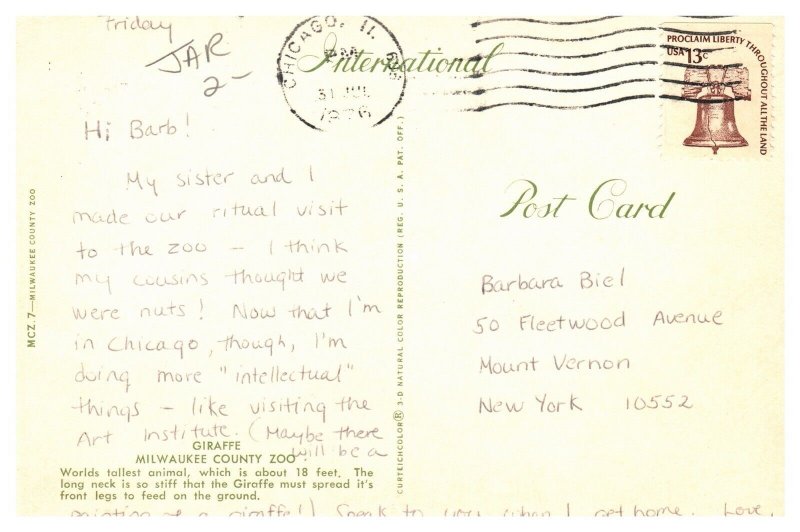 Friday
JAR
2-
CHICAGO, IL 606
PM
31 JUL
1976
International
PROCLAIM LIBERTY THROUGHOUT ALL THE LAND
USA 13c
Hi Barb!
My sister and I
made our ritual visit
to the zoo - I think
my cousins thought we
were nuts! Now that I'm
in Chicago, though, I'm
doing more "intellectual"
things - like visiting the
Art Institute. (Maybe there
will be a
painting of a giraffe!) Speak to you when I get home. Love,
GIRAFFE
MILWAUKEE COUNTY ZOO
Worlds tallest animal, which is about 18 feet. The
long neck is so stiff that the Giraffe must spread it's
front legs to feed on the ground.
MCZ.7—MILWAUKEE COUNTY ZOO
CURTEICHCOLOR® 3-D NATURAL COLOR REPRODUCTION (REG. U. S. A. PAT. OFF.)
Post Card
Barbara Biel
50 Fleetwood Avenue
Mount Vernon
New York 10552